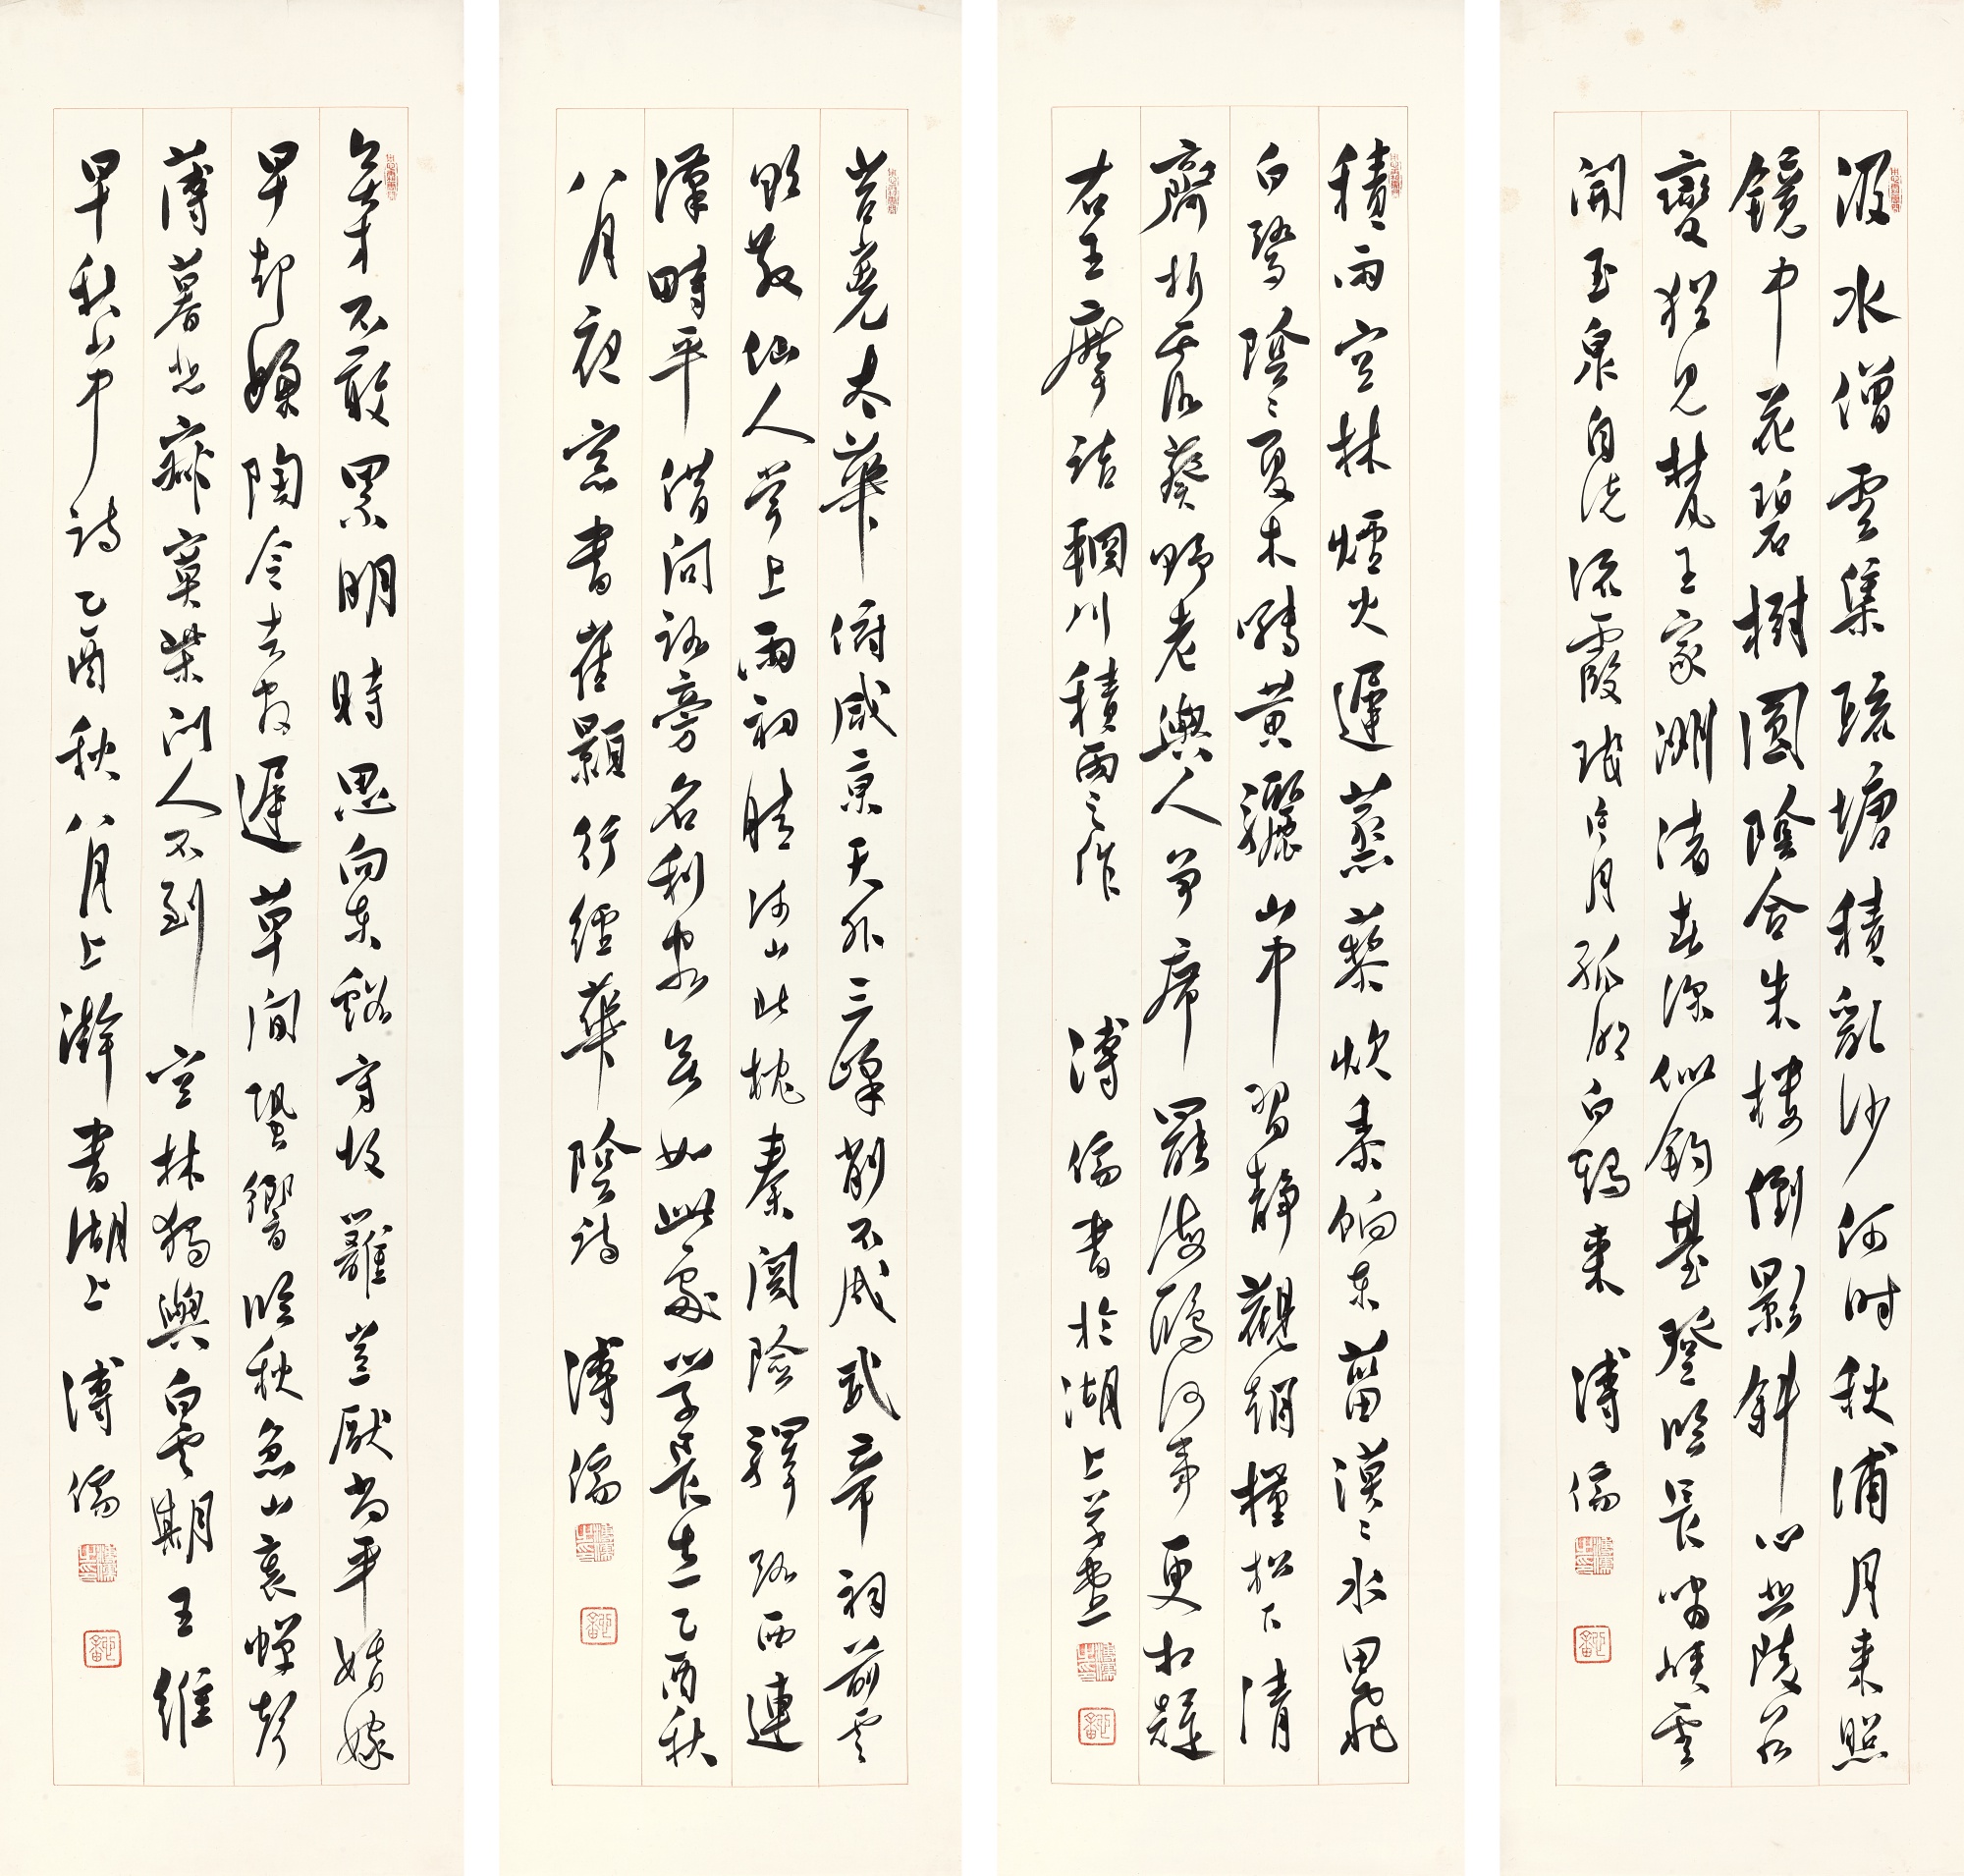 汲水僧雲集疏塘積亂沙何时秋浦月来照
鏡中花碧樹圓陰合朱樓倒影斜心悲陵谷
變猶見梵王家洲渚春深似釣臺登臨長嘯峽雲
開玉泉自洗流霞珮片月孤明白鶴来 溥儒
積雨空林煙火遲蒸藜炊黍餉東菑漠〻水田飛
白鷺陰〻夏木囀黃鸝山中習靜觀朝槿松下清
齋折露葵野老與人爭席罷海鷗何事更相疑
右王摩詰輞川積雨之作 溥儒書於湖上草堂
岧嶤太華俯咸京天外三峰削不成武帝祠前雲
欲散仙人掌上雨初晴河山北枕秦關險驛路西連
漢畤平借問路旁名利客無如此處學長生乙酉秋
八月夜窓書崔顥行經華陰詩 溥儒
無才不敢累明時思向東谿守故籬豈厭尚平婚嫁
早却嫌陶令去官遲草間蛩響臨秋急山裏蟬聲
薄暮悲寂寞柴門人不到空林獨與白雲期王維
早秋山中詩乙酉秋八月上澣書湖上 溥儒